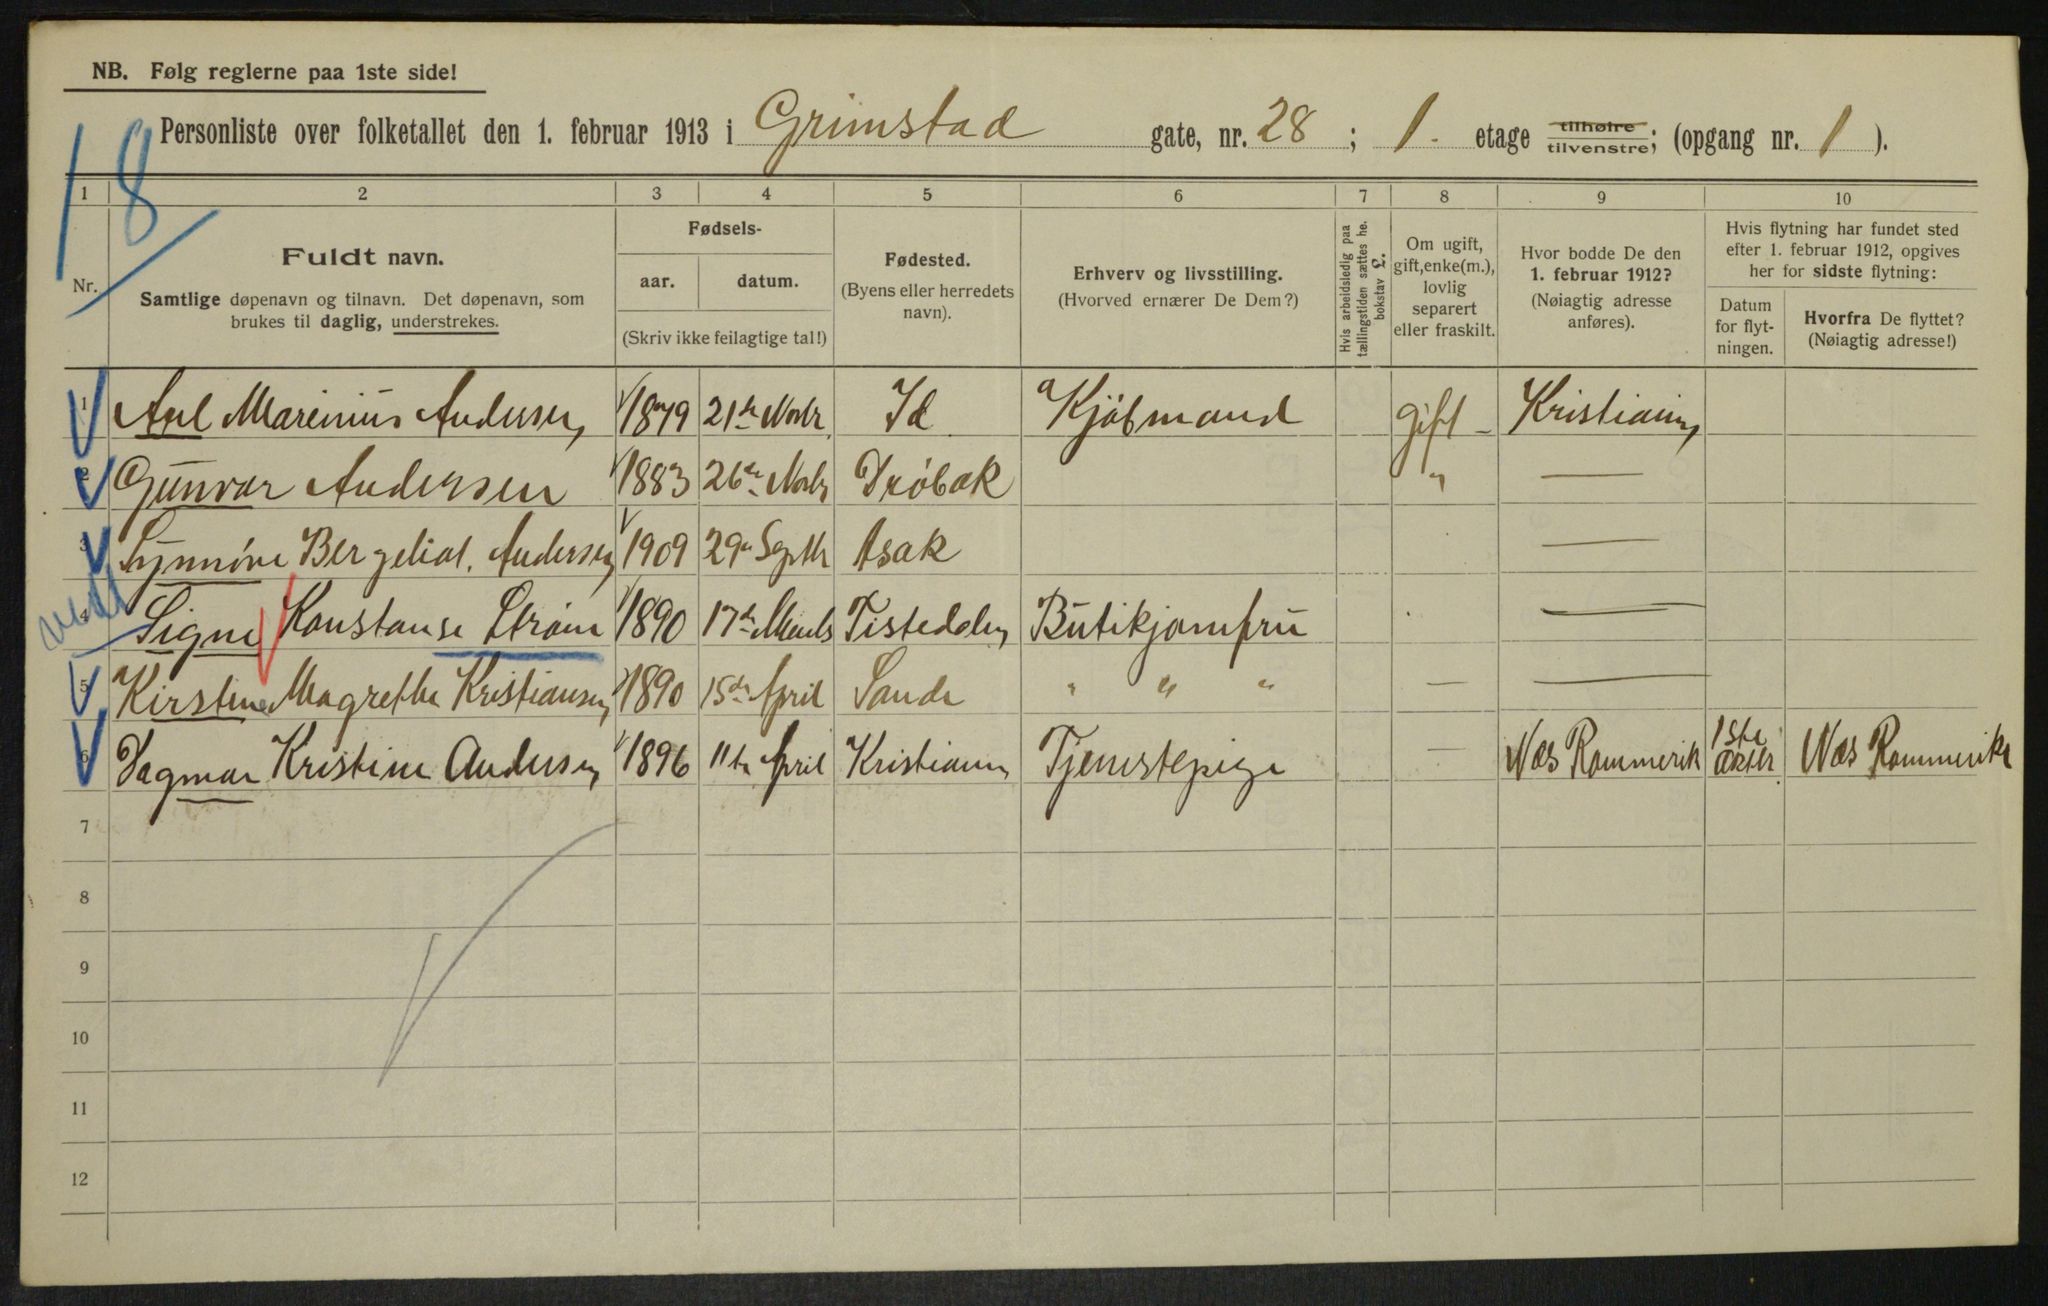 NB. Følg reglerne paa 1ste side!
Personliste over folketallet den 1. februar 1913 i Grimstad gate, nr. 28 ; 1. etage tilhøire tilvenstre; (opgang nr. 1 ).
18
1 2 3 4 5 6 7 8 9 10
Nr.
Fuldt navn.
Samtlige døpenavn og tilnavn. Det døpenavn, som
brukes til daglig, understrekes.
Fødsels-
aar. datum.
(Skriv ikke feilagtige tal!)
Fødested.
(Byens eller herredets
navn).
Erhverv og livsstilling.
(Hvorved ernærer De Dem?)
Hvis arbeidsledig paa
tællingstiden sættes he.
bokstav L.
Om ugift,
gift, enke(m.),
lovlig
separert
eller fraskilt.
Hvor bodde De den
1. februar 1912?
(Nøiagtig adresse
anføres).
Hvis flytning har fundet sted
efter 1. februar 1912, opgives
her for sidste flytning:
Datum
for flyt-
ningen.
Hvorfra De flyttet?
(Nøiagtig adresse!)
1 Axel Marinius Andersen 1879 21de Novbr. Id Kjøbmand gift Kristiania
2 Gunvor Andersen 1883 26de Novbr Drøbak " —
3 Synnøve Bergeliot. Andersen 1909 29de Septbr Asak —
4 Signe Konstanse Strøm 1890 17de Marts Tistedalen Butikjomfru —
5 Kirstine Magrethe Kristiansen 1890 15de April Sande " " " — —
6 Dagmar Kristine Andersen 1896 11te April Kristiania Tjenestepige — Næs Romerrik 1ste Oktbr. Næs Romerrike
7
8
9
10
11
12